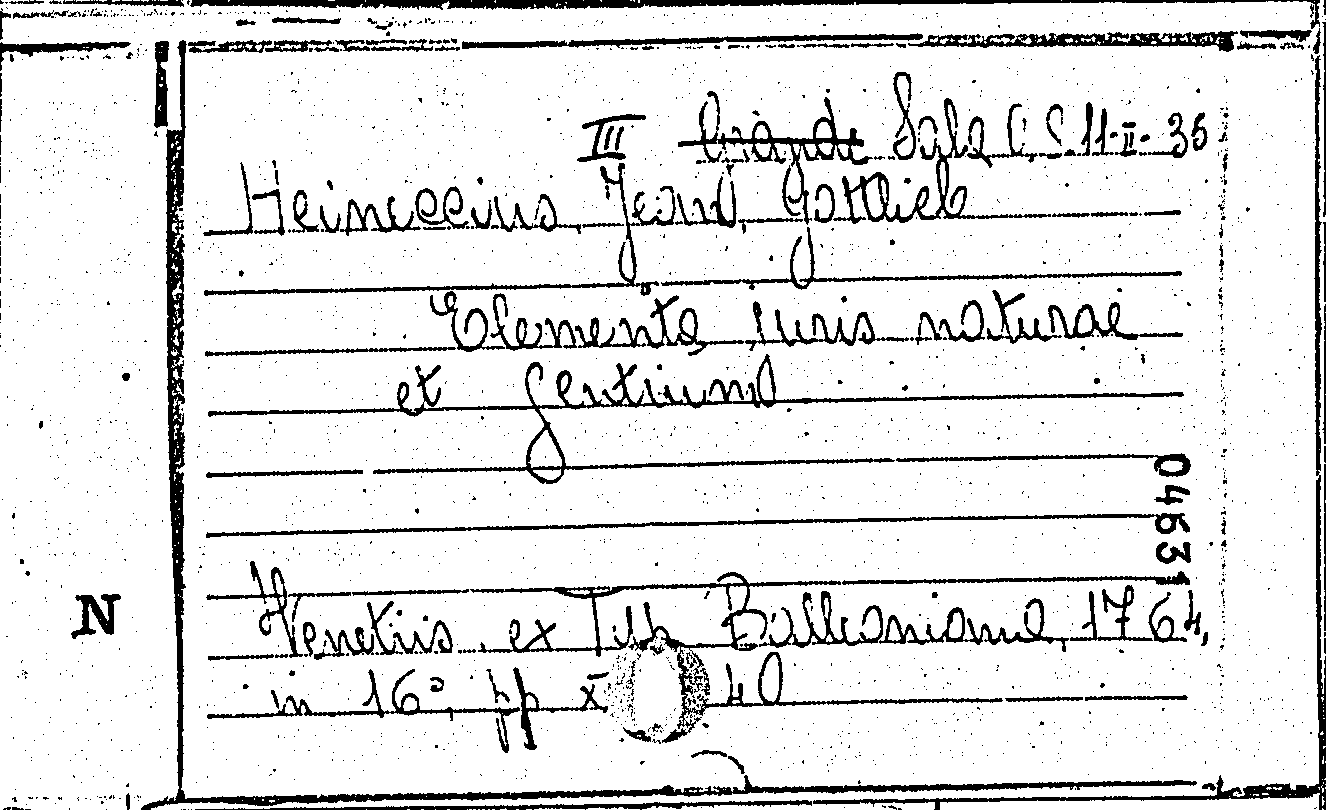 III Grande Sala C.S. 11-II-36
Heineccius, Joan. Gottlieb
Elementa iuris naturae
et gentium
04631
N
Venetiis, ex Typ. Balleoniana, 1764,
in 16°, pp X 40